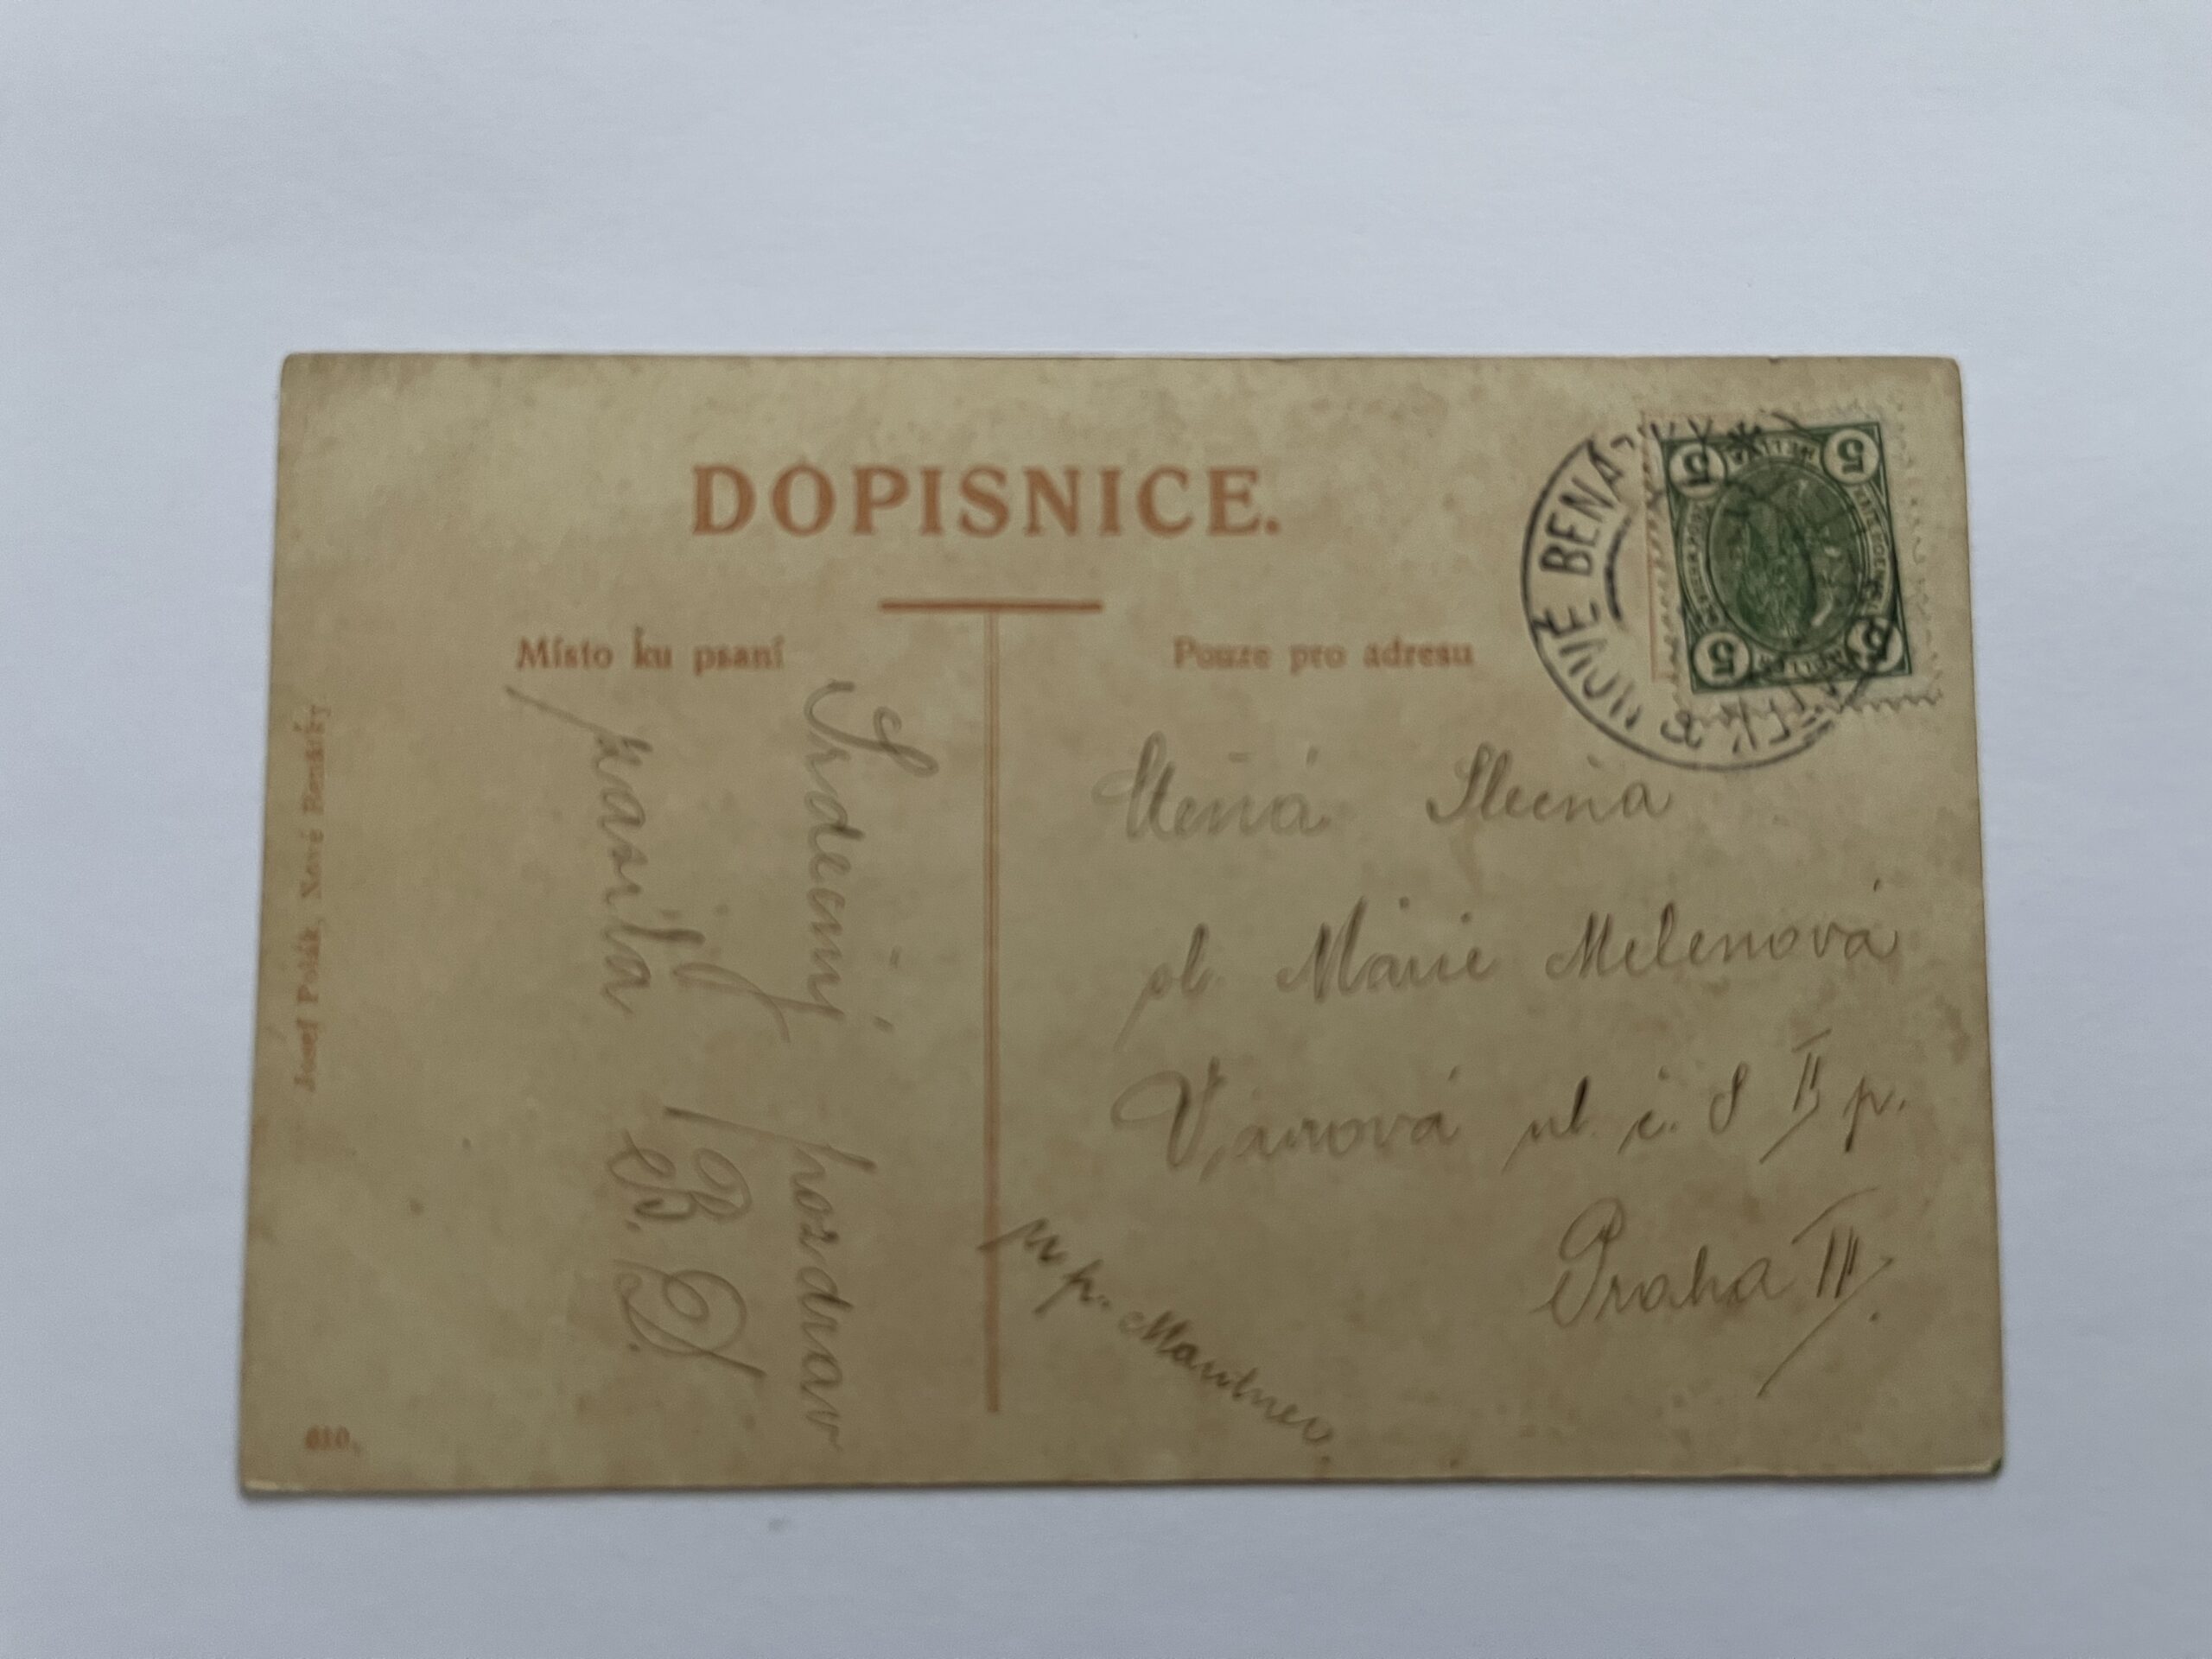 DOPISNICE.
Místo ku psaní
Pouze pro adresu
NOVÉ BENÁTKY
5 5
5 5
Ctěná Slečna
sl. Marie Melenová
ul. č. 8 II p.
Praha III.
u p. Mautner
Srdečný pozdrav
B. D.
Josef Polák, Nové Benátky.
610.